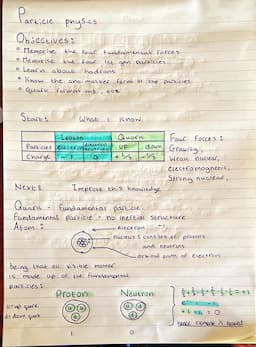 Particle physics
Objectives:
* Memorise the four fundamental forces
* Memorise the four 1st gen particles.
* Learn about hadrons
* Know the anti-matter form of the particles
* Quark formations, etc
Start: What I Know
Lepton Quark
Particle electron electron neutrino up down
Charge -1 0 +2/3 -1/3
Four Forces:
Gravity,
Weak nuclear,
electromagnetic,
Strong nuclear,
Next: Improve this knowledge
Quark - Fundamental particle.
Fundamental particle - no internal structure
Atom:
electron
nucleus consists of protons
and neutrons
orbital path of electron
Being that all visible matter
is made up of the fundamental
particles:
Proton Neutron
u: up quark
d: down quark
= 0